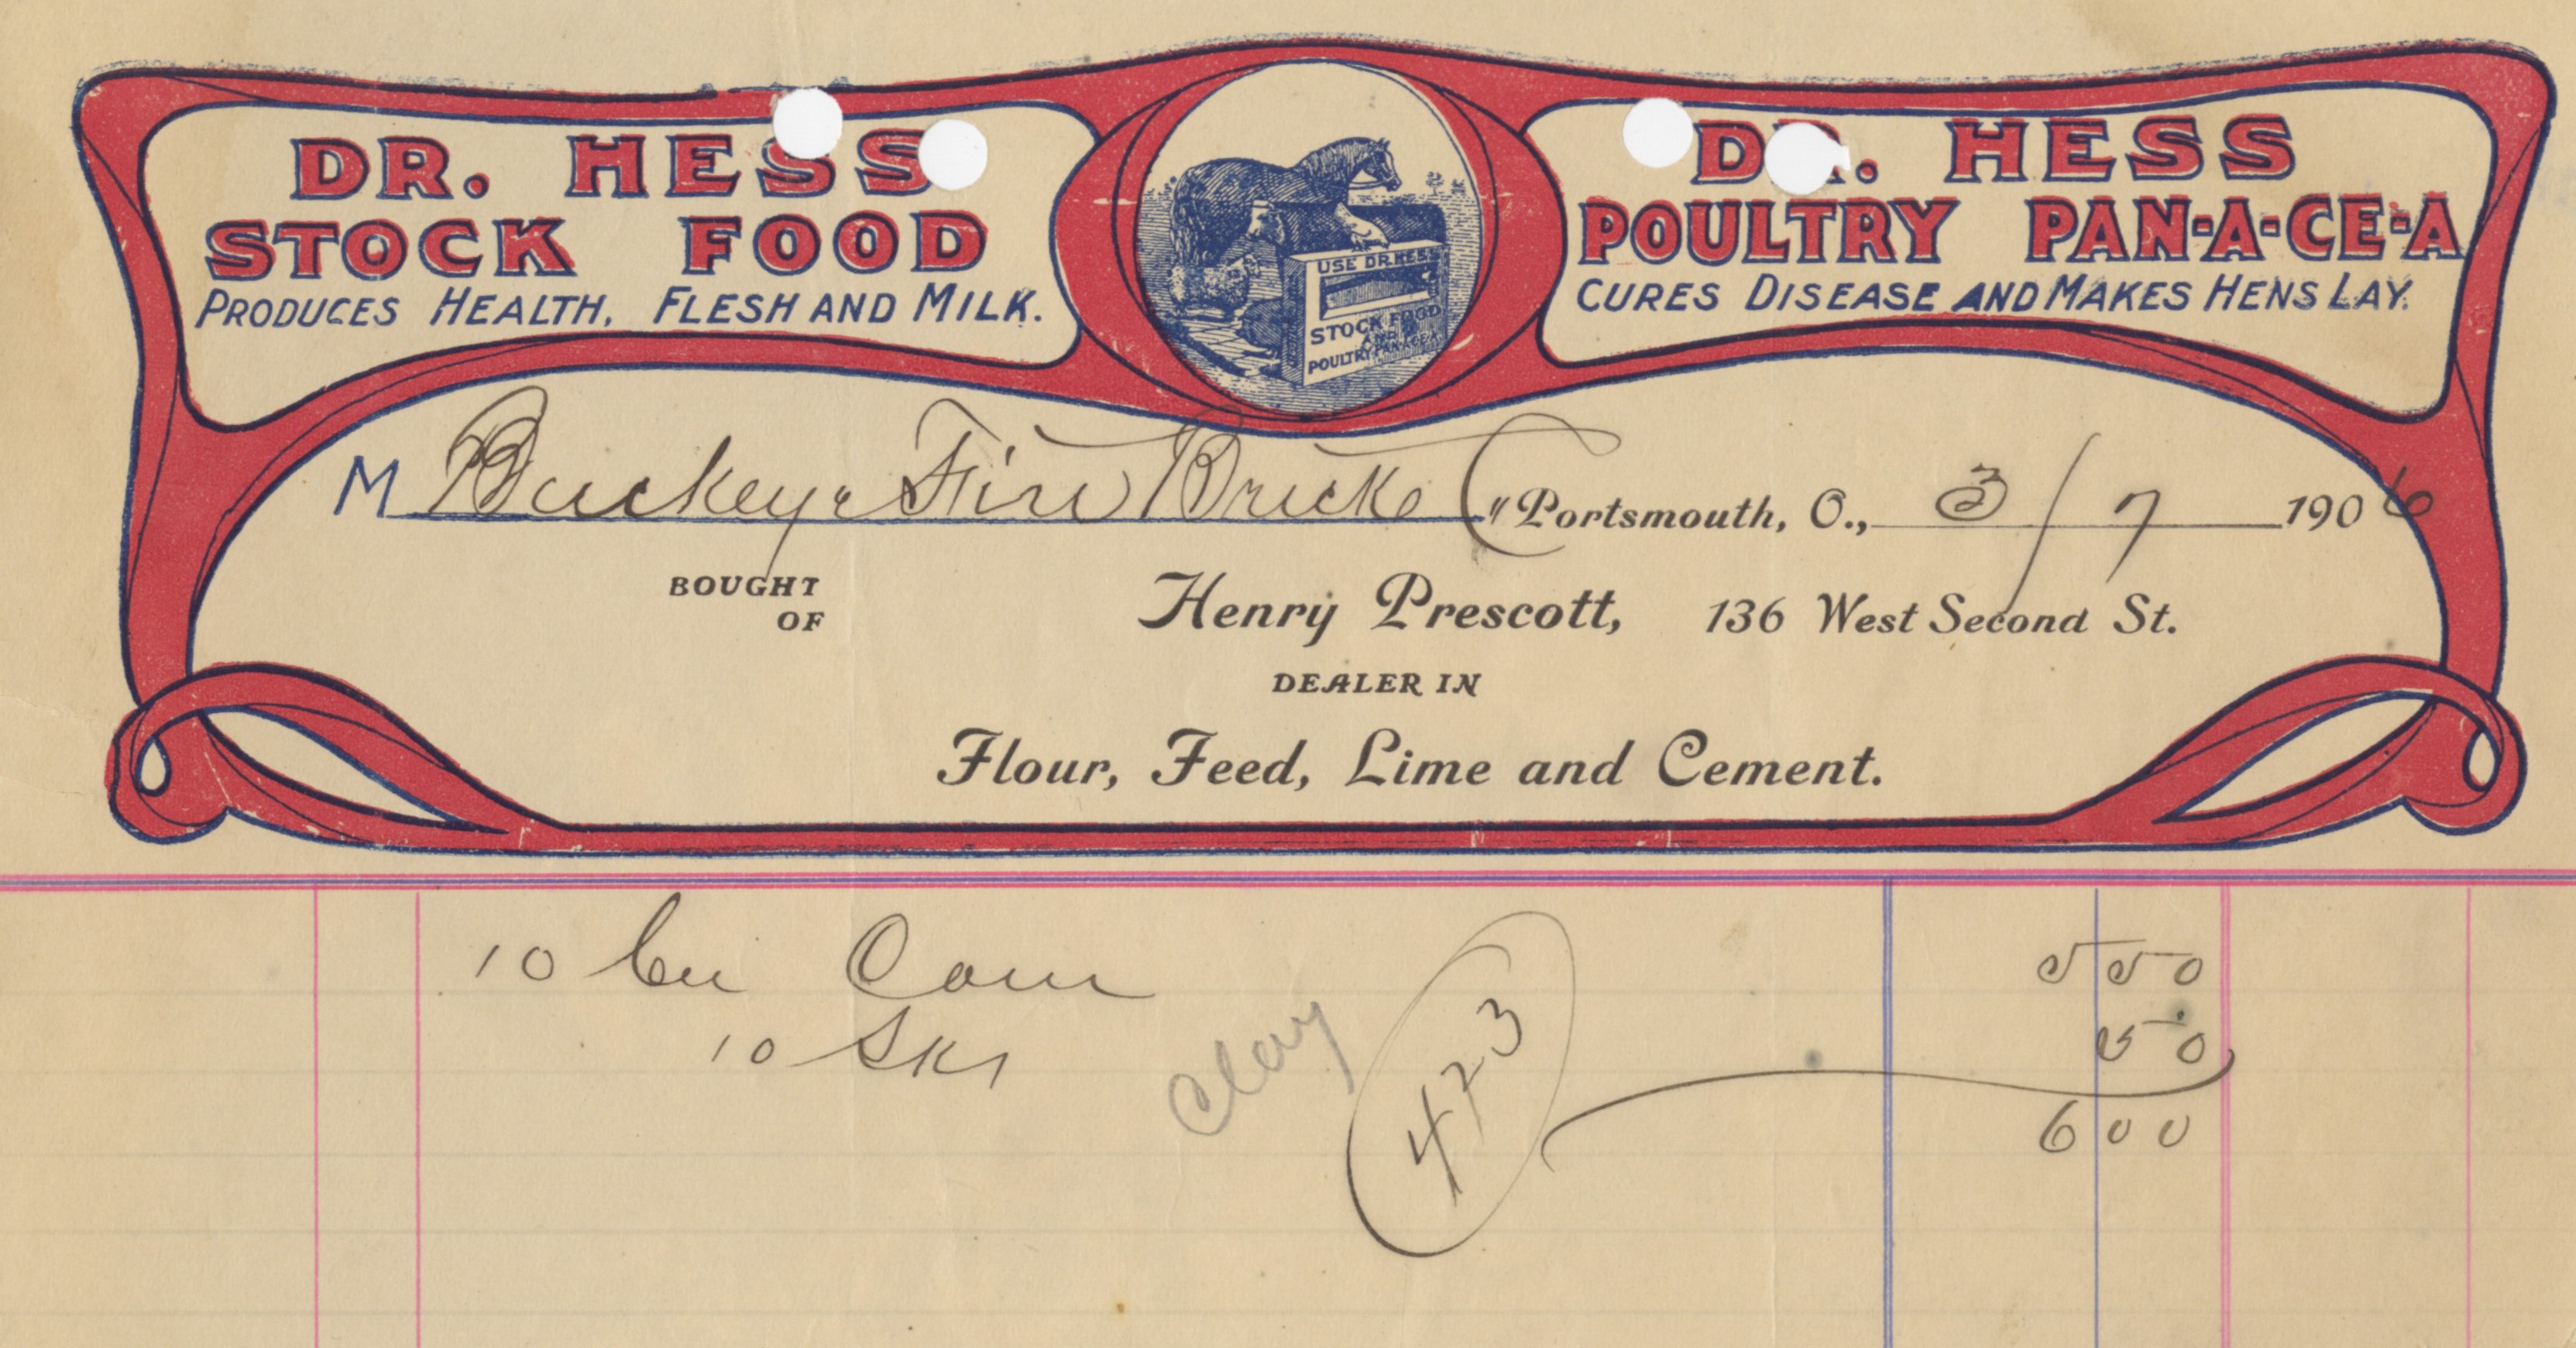 DR. HESS
STOCK FOOD
PRODUCES HEALTH, FLESH AND MILK.
USE DR. HESS
STOCK FOOD
AND
POULTRY PAN-A-CE-A
DR. HESS
POULTRY PAN-A-CE-A
CURES DISEASE AND MAKES HENS LAY.
M Buckeye Fire Brick Co Portsmouth, O., 3/7 1906
BOUGHT OF Henry Prescott, 136 West Second St.
DEALER IN
Flour, Feed, Lime and Cement.
10 bu Corn 5 50
10 Sks 50
Clay
423
6 00